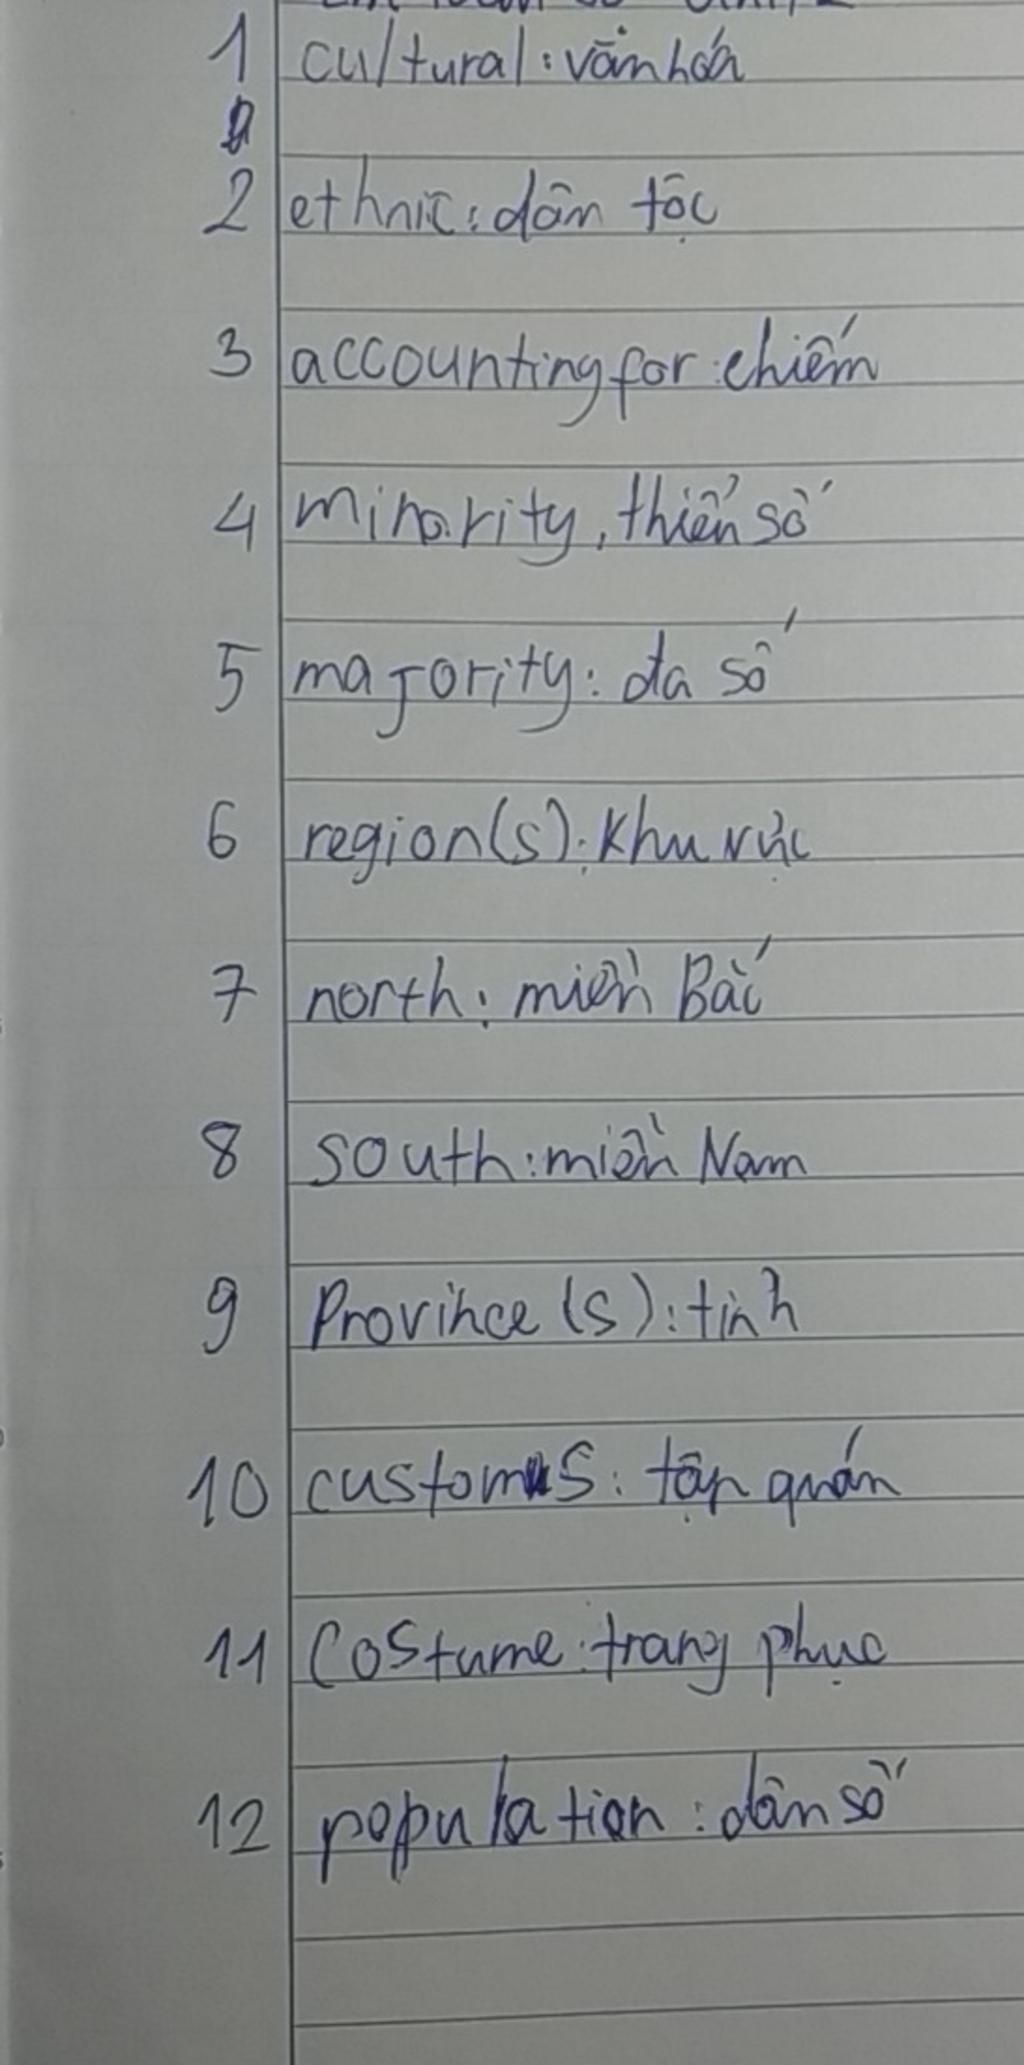 1 cultural: văn hóa
2 ethnic: dân tộc
3 accounting for: chiếm
4 minority, thiểu số
5 majority: đa số
6 region(s): khu vực
7 north: miền Bắc
8 south: miền Nam
9 Province(s): tỉnh
10 customs: tập quán
11 Costume: trang phục
12 population: dân số